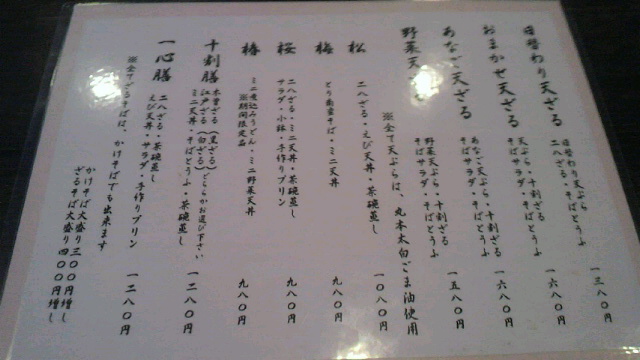 日替わり天ざる
日替わり天ぷら
二八ざる・そばとうふ
一三八〇円
おまかせ天ざる
天ぷら・十割ざる
そばサラダ・そばとうふ
一六八〇円
あなご天ざる
あなご天ぷら・十割ざる
そばサラダ・そばとうふ
一六八〇円
野菜天ざる
野菜天ぷら・十割ざる
そばサラダ・そばとうふ
一五八〇円
※全て天ぷらは、丸本太白ごま油使用
松
二八ざる・えび天丼・茶碗蒸し
一〇八〇円
梅
とり南蛮そば・ミニ天丼
九八〇円
桜
二八ざる・ミニ天丼・茶碗蒸し
サラダ・小鉢・手作りプリン
九八〇円
椿
ミニ煮込みうどん・ミニ野菜天丼
※期間限定品
九八〇円
十割膳
木曽ざる（黒ざる）
江戸ざる（白ざる）どちらかお選び下さい
ミニ天丼・そばとうふ・茶碗蒸し
一二八〇円
一心膳
二八ざる・茶碗蒸し
えび天丼・サラダ・手作りプリン
一二八〇円
※全てざるそばは、かけそばでも出来ます
かけそば大盛り三〇〇円増し
ざるそば大盛り四〇〇円増し